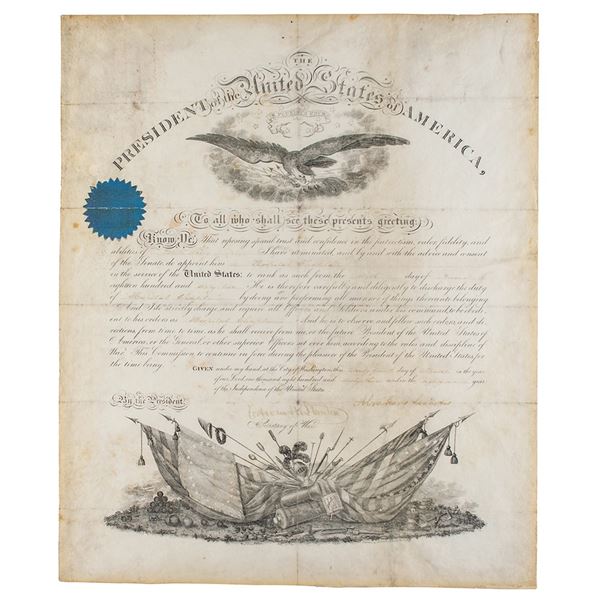 THE
PRESIDENT of the United States of AMERICA,
To all who shall see these presents greeting:
Know Ye, That reposing special trust and confidence in the patriotism, valor, fidelity, and
abilities of I have nominated, and by and with the advice and consent
of the Senate, do appoint him
in the service of the United States: to rank as such from the day of
eighteen hundred and He is therefore carefully and diligently to discharge the duty
of by doing and performing all manner of things thereunto belonging.
And I do strictly charge and require all Officers and Soldiers under his command, to be obedi-
ent to his orders as And he is to observe and follow such orders, and di-
rections, from time to time, as he shall receive from me, or the future President of the United States of
America, or the General, or other superior Officers set over him, according to the rules and discipline of
War. This Commission to continue in force during the pleasure of the President of the United States, for
the time being.
GIVEN under my hand, at the City of Washington, this day of in the year
of our Lord one thousand eight hundred and and in the year
of the Independence of the United States.
By the President,
Abraham Lincoln
Edwin M Stanton
Secretary of War.